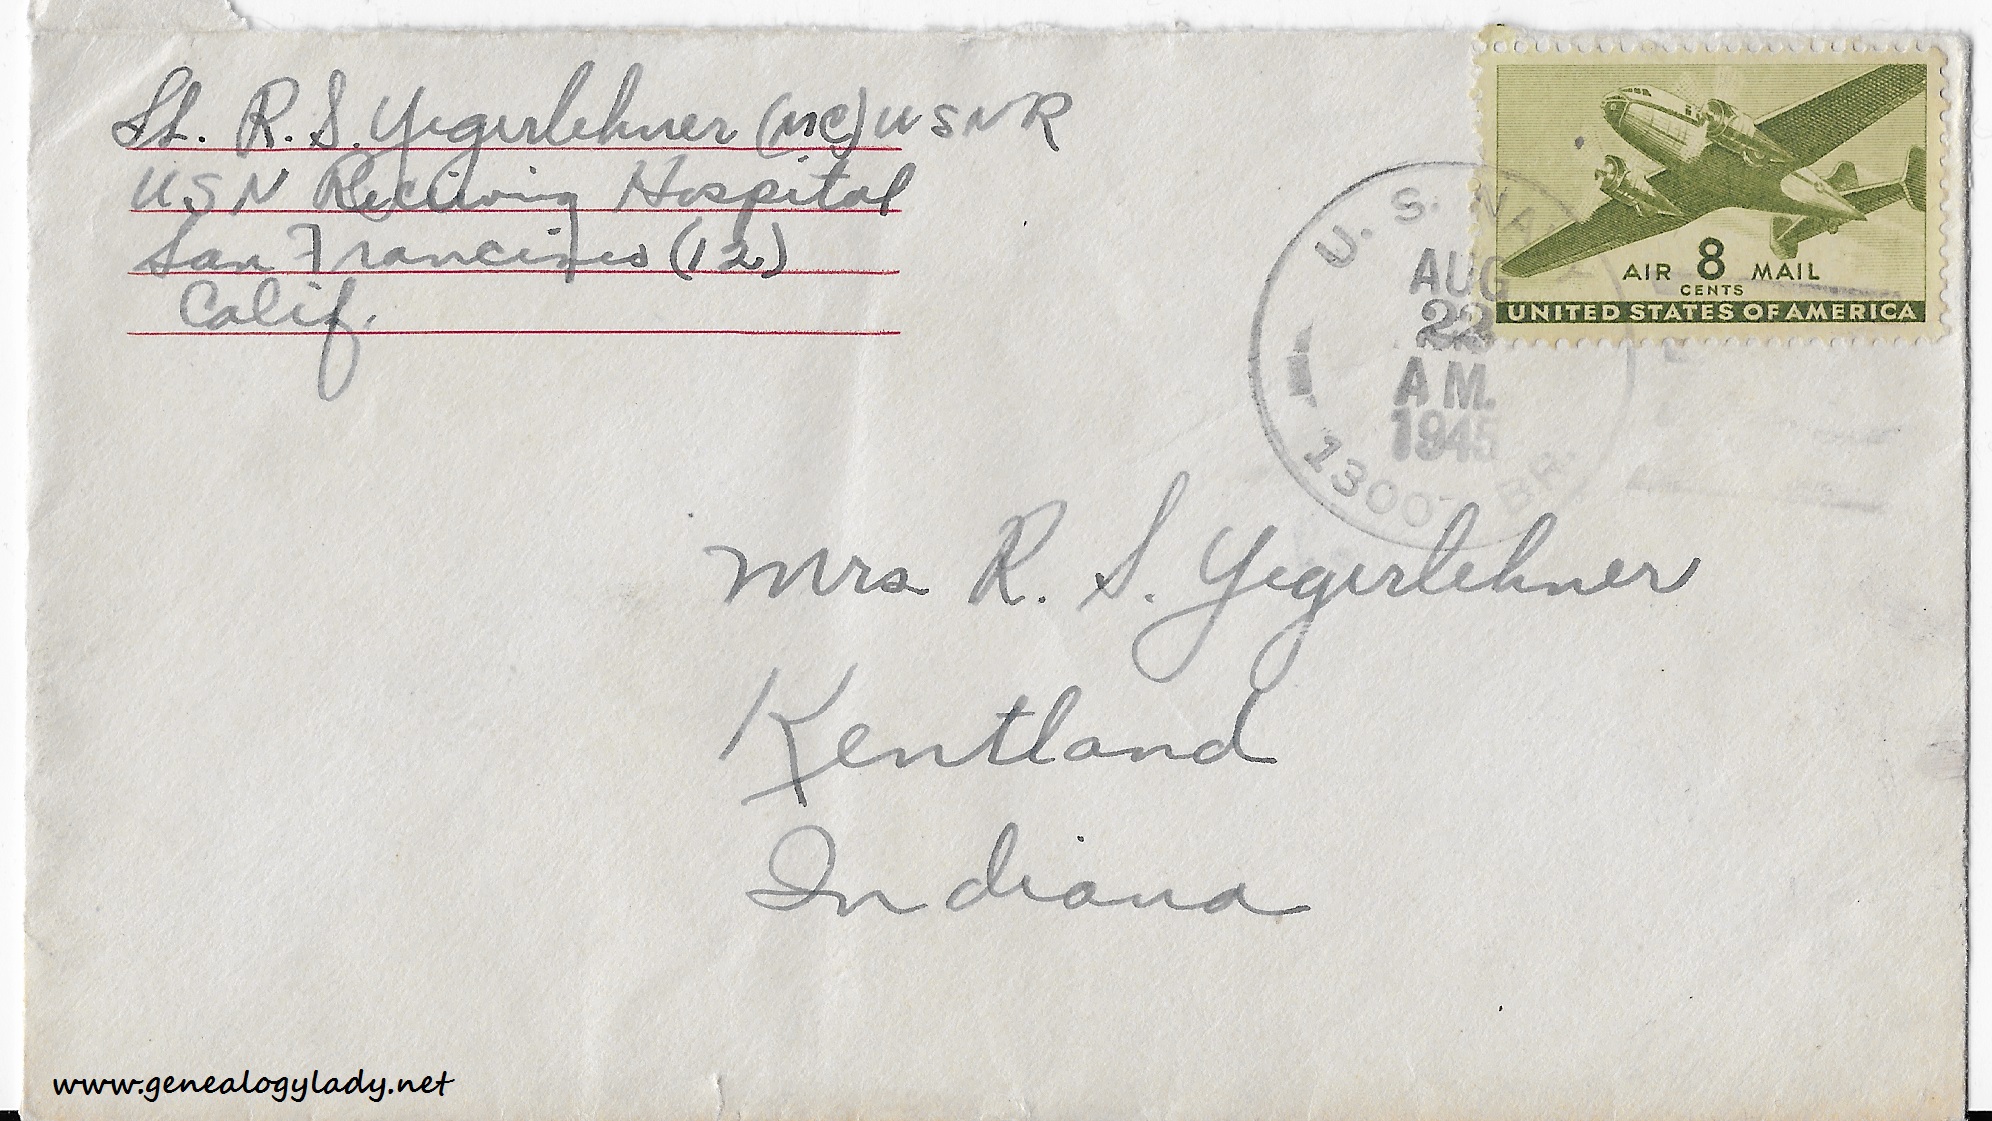 Lt. R. S. Yegerlehner (MC) USNR
USN Receiving Hospital
San Francisco (12)
Calif.
AIR 8 MAIL
CENTS
UNITED STATES OF AMERICA
U. S. NAVY
AUG
22
A M.
1945
BR.
Mrs R. S. Yegerlehner
Kentland
Indiana
www.genealogylady.net